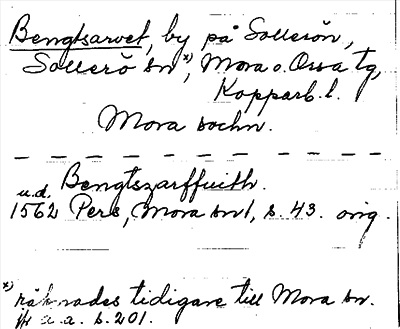 Bengtsarvet, by på Sollerön,
Sollerö sn x), Mora o. Orsa tg,
Kopparb. l.
Mora sochn.
u.d. Bengtszarffuith.
1562 Pers, Mora sn 1, s. 43. orig.
x) räknades tidigare till Mora sn.
a. a. s. 201.